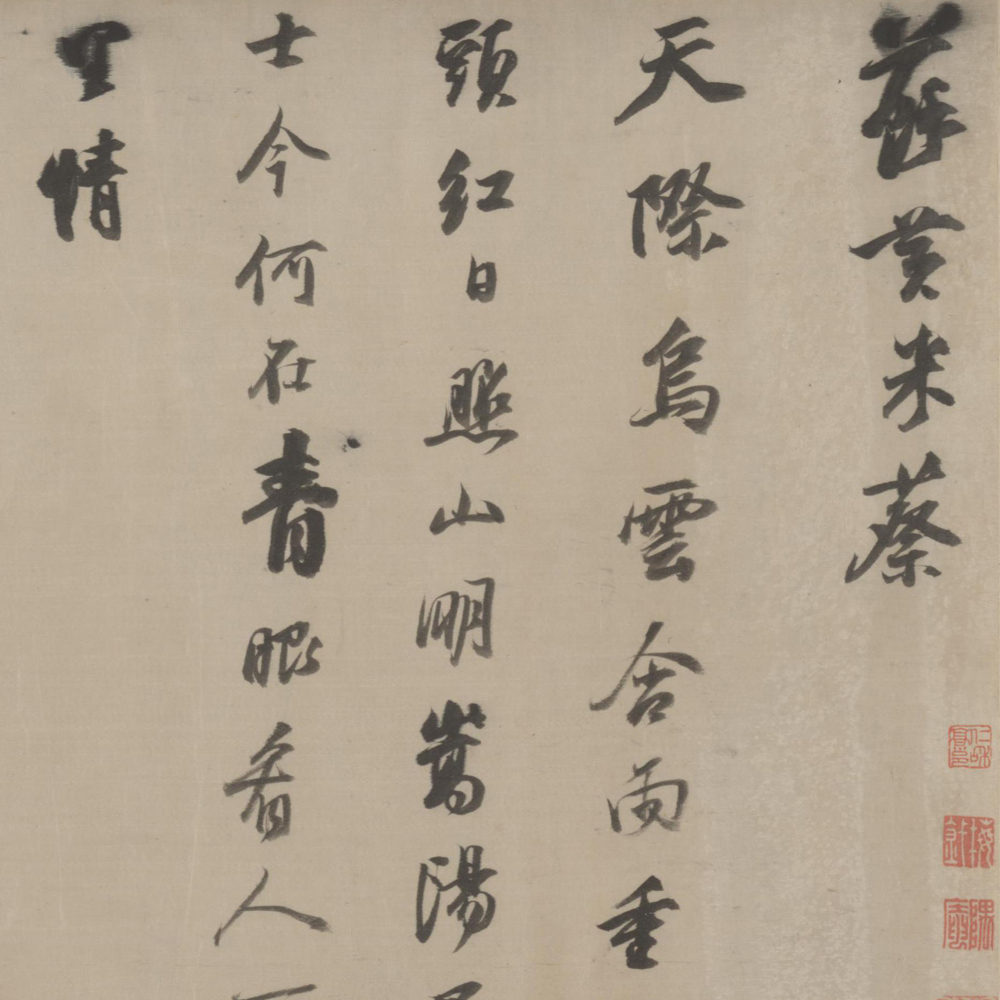 蘇黄米蔡
天際烏雲含雨重
頭紅日照山明嵩陽
士今何在青眼看人
里情